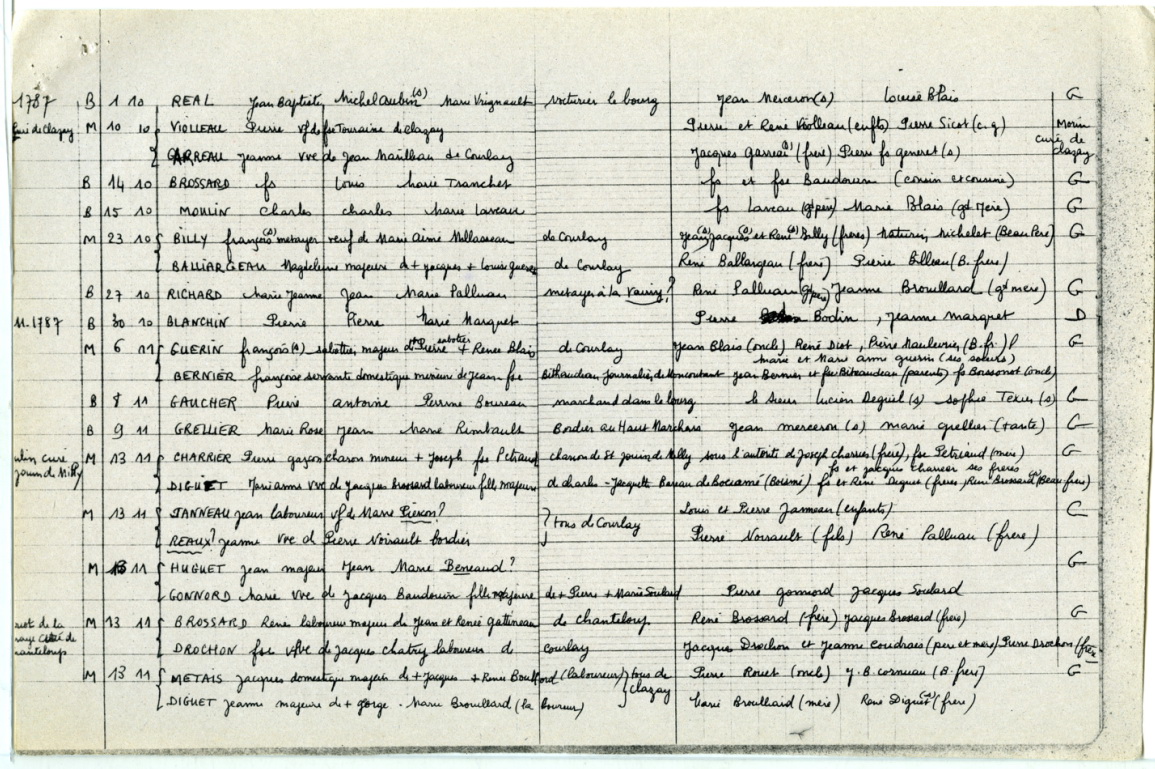 1787 B 1 10 REAL Jean Baptiste, Michel Aubin (s) Marie Vrignault voiturier le bourg Jean Merceron (s) Louise Blais G
curé de Clazay M 10 10 VIOLLEAU Pierre vf de fse Touraine de clazay Pierre et René Violleau (enfts) Pierre Sicot (c.g) Morin
curé de
clazay
GARREAU Jeanne vve de Jean Maulleau de Courlay Jacques Garreau (s) (frere) Pierre fs generet (s)
B 14 10 BROSSARD fs Louis Marie Tranchet fs et fse Baudouin (cousin et cousine) G
B 15 10 MOULIN Charles charles Marie Laveau fs Laveau (gd père) Marie Blais (gd Mere) G
M 23 10 BILLY françois (s) metayer veuf de Marie Aimé de Courlay Jean (s) Jacques (s) et René (s) Billy (freres) Maturin Michelet (Beau Pere) G
BALLIARGEAU Magdeleine majeure d + Jacques + Louise de Courlay René Ballargeau (frere) Pierre Billeau (B. frere)
B 27 10 RICHARD Marie Jeanne Jean Marie Palluau metayer à la Vauvry? René Palluau (gd pere) Jeanne Brouillard (gd mere) G
11.1787 B 30 10 BLANCHIN Pierre Pierre Marie Marquet Pierre Bodin, Jeanne marquet D
M 6 11 GUERIN françois (s) sabottier, majeur d + Pierre sabotier + Renee Blais de Courlay Jean Blais (oncle) René Diot, Pierre Maulevrier (B. fr)
marie et Marie anne guerin (ses soeurs)
BERNIER françoise servante domestique mineure de Jean - fse Bithaudeau journalier, de Moncoutant Jean Bernier et fse Biteaudeau (parents) fs Boissonot (oncle)
B 8 11 GAUCHER Pierre antoine Perrine Boureau marchand dans le bourg le sieur Lucien Deguil (s) sophie Texier (s) G
B 9 11 GRELLIER Marie Rose Jean Marie Rimbault Bordier au Haut Marchais Jean merceron (s) marie grellier (tante) G
M 13 11 CHARRIER Pierre garçon charon mineur + Joseph fse Petraud charon de St Jouin de Milly sous l'autorité de Joseph charrier (frere), fse Petriaud (mere) G
fs et Jacques charrier ses freres
DIGUET Marianne vve de Jacques Brossard laboureur fille majeure d charle - Jacquette Bureau de Boesmé (Boismé) fs et René Diguet (freres) René Brossard (Beau frere)
M 13 11 JANNEAU Jean laboureur vf de Marie Pieron? tous de Courlay Louis et Pierre Janneau (enfants) C
REAUX? Jeanne vve d Pierre Noirault bordier Pierre Noirault (fils) René Palluau (frere)
M 13 11 HUGUET Jean majeur Jean Marie Beneaud? G
GONNORD Marie vve de Jacques Baudouin fille majeure de + Pierre + Marie Soulard Pierre gonnord Jacques Soulard
M 13 11 BROSSARD René laboureur majeur de Jean et Renée Gattineau de chanteloup René Brossard (frere) Jacques Brossard (frere) G
DROCHON fse vve de Jacques chatry laboureur de courlay Jacques Drochon et Jeanne Coudrais (pere et mere) Pierre Drochon (frere)
M 13 11 METAIS Jacques domestique majeur de + Jacques + Renee Bouttord (laboureur) tous de clazay Pierre Rouet (oncle) J. B. corneau (B. frere) G
DIGUET Jeanne majeure de + gorge - Marie Brouillard (laboureur) Marie Brouillard (mere) René Diguet (s) (frere)